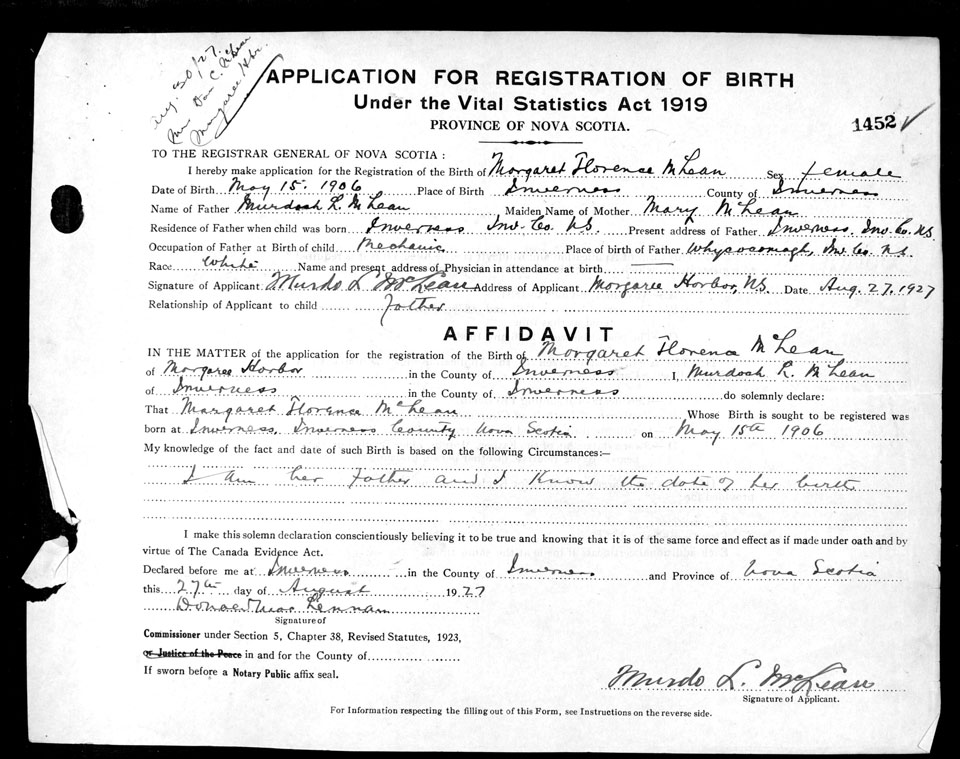 Aug. 30/27.
Mrs Dan C.
Margaree Hbr.
APPLICATION FOR REGISTRATION OF BIRTH
Under the Vital Statistics Act 1919
PROVINCE OF NOVA SCOTIA.
1452
TO THE REGISTRAR GENERAL OF NOVA SCOTIA :
I hereby make application for the Registration of the Birth of Margaret Florence McLean Sex female
Date of Birth May 15. 1906 Place of Birth Inverness County of Inverness
Name of Father Murdoch L. McLean Maiden Name of Mother Mary McLean
Residence of Father when child was born Inverness Inv. Co. N.S. Present address of Father Inverness, Inv. Co. N.S.
Occupation of Father at Birth of child Mechanic Place of birth of Father Whycocomagh, Inv. Co. N.S.
Race White Name and present address of Physician in attendance at birth
Signature of Applicant Murdo L McLean Address of Applicant Margaree Harbor, N.S. Date Aug. 27, 1927
Relationship of Applicant to child Father
AFFIDAVIT
IN THE MATTER of the application for the registration of the Birth of Margaret Florence McLean
of Margaree Harbor in the County of Inverness I, Murdoch L. McLean
of Inverness in the County of Inverness do solemnly declare:
That Margaret Florence McLean Whose Birth is sought to be registered was
born at Inverness, Inverness County Nova Scotia on May 15th 1906
My knowledge of the fact and date of such Birth is based on the following Circumstances:—
I am her Father and I Know the date of her birth
I make this solemn declaration conscientiously believing it to be true and knowing that it is of the same force and effect as if made under oath and by
virtue of The Canada Evidence Act.
Declared before me at Inverness in the County of Inverness and Province of Nova Scotia
this 27th day of August 1927
Donald MacLennan
Signature of
Commissioner under Section 5, Chapter 38, Revised Statutes, 1923,
or Justice of the Peace in and for the County of
If sworn before a Notary Public affix seal.
Murdo L. McLean
Signature of Applicant.
For Information respecting the filling out of this Form, see Instructions on the reverse side.